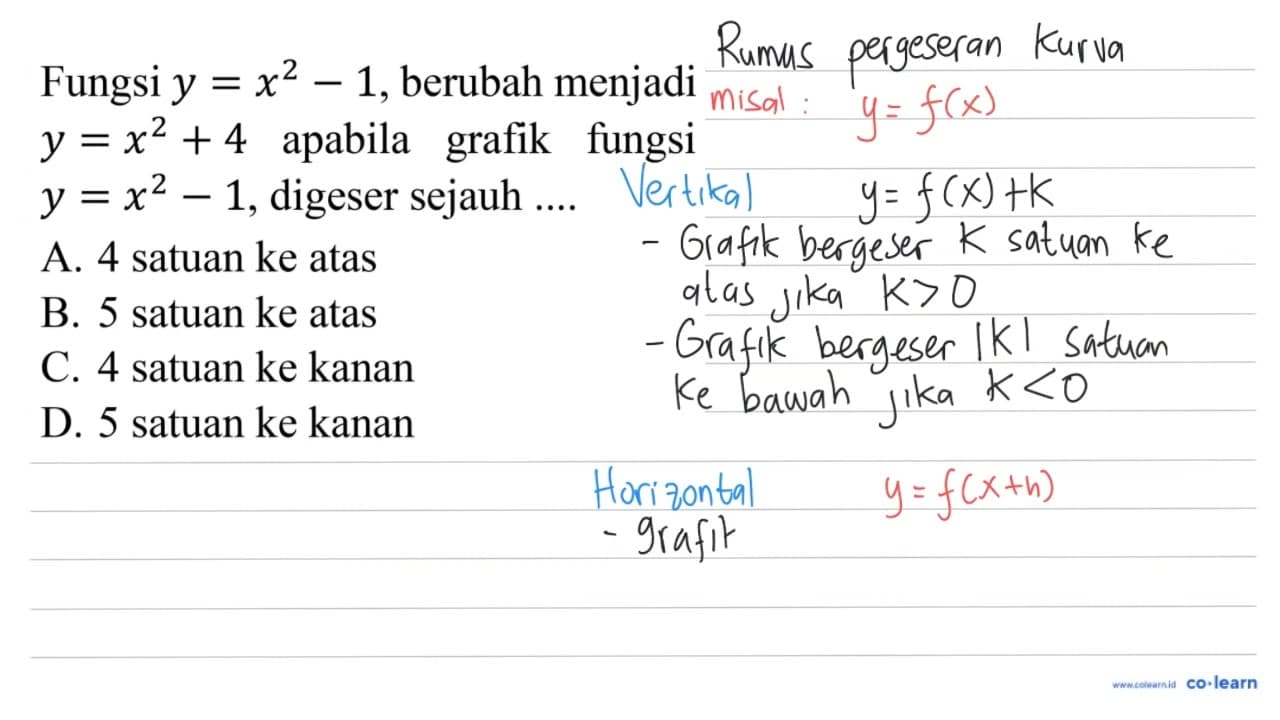 Fungsi y = x² − 1, berubah menjadi
y = x² + 4 apabila grafik fungsi
y = x² − 1, digeser sejauh ....
A. 4 satuan ke atas
B. 5 satuan ke atas
C. 4 satuan ke kanan
D. 5 satuan ke kanan
Rumus pergeseran kurva
misal : y = f(x)
Vertikal y = f(x) + K
- Grafik bergeser K satuan ke
atas jika K > 0
- Grafik bergeser |K| satuan
ke bawah jika K < 0
Horizontal y = f(x+h)
- grafik
www.colearn.id co·learn